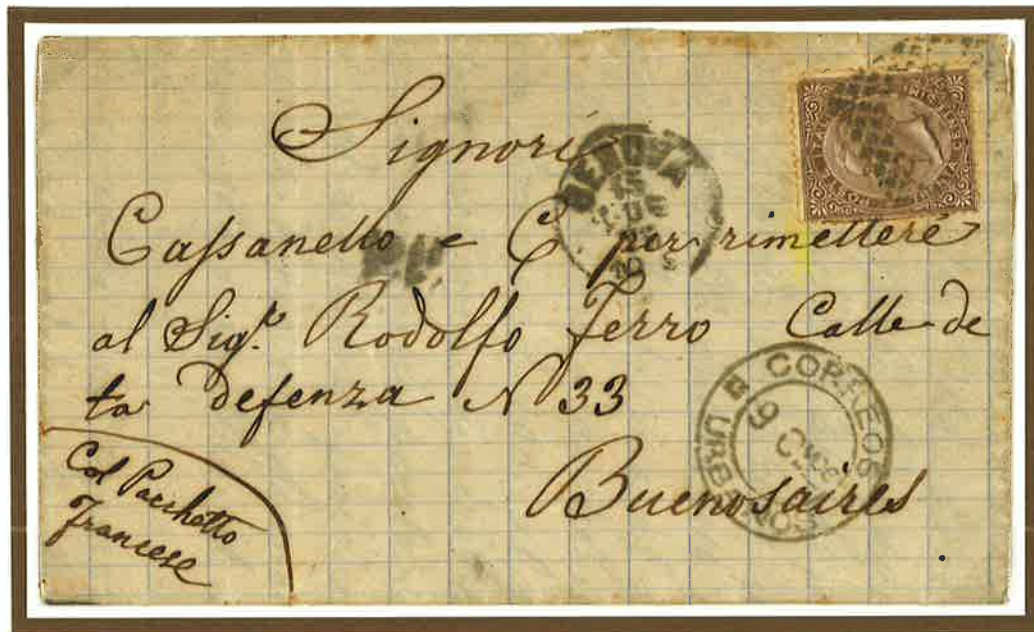 Signori
Cassanello e C per rimettere
al Sigr. Rodolfo Ferro Calle de
ta defenza N 33
Buenosaires
Col Pacchotto
Francese
GENOVA
15
CORREOS
BUENOS